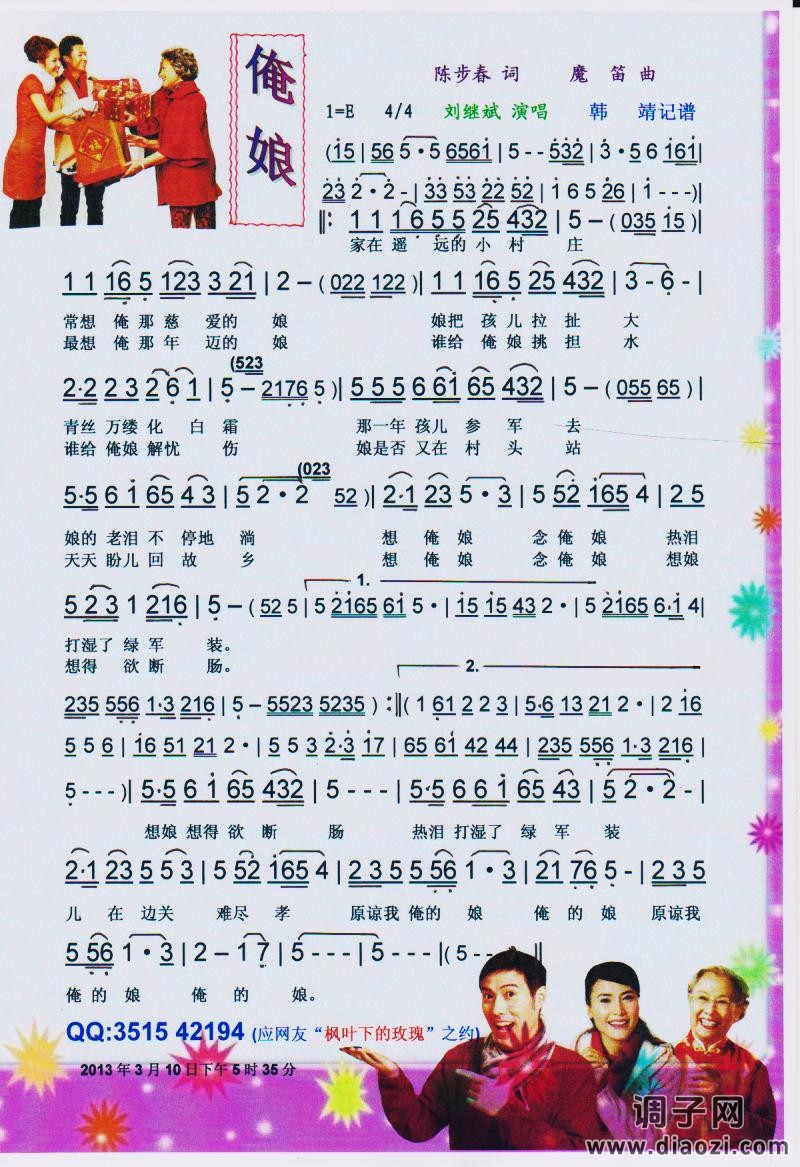 俺娘
陈步春 词 魔 笛 曲
1=E 4/4 刘继斌 演唱 韩 靖记谱
(15 | 56 5·5 6561 | 5 - - 532 | 3·5 6 161 |
23 2·2 - | 33 53 22 52 | 1 6 5 26 | 1 - - - ) |
‖: 1 1 165 5 25 432 | 5 – (035 15) |
家在遥 远的小 村 庄
1 1 16 5 123 3 21 | 2 – (022 122) | 1 1 16 5 25 432 | 3 - 6 - |
常想 俺 那 慈 爱的 娘 娘把 孩 儿 拉 扯 大
最想 俺 那 年 迈的 娘 谁给 俺 娘 挑 担 水
(523
2·2 2 3 2 6 1 | 5 – 2176 5 ) | 5 5 5 6 61 65 432 | 5 – (055 65) |
青丝 万缕 化 白 霜 那一年 孩儿 参 军 去
谁给 俺娘 解忧 伤 娘是否 又在 村 头 站
(023
5·5 6 1 65 4 3 | 5 2·2 52 ) | 2·1 23 5·3 | 5 52 165 4 | 2 5
娘的 老泪 不 停地 淌 想 俺 娘 念 俺 娘 热泪
天天 盼儿 回 故 乡 想 俺 娘 念 俺 娘 想娘
1.
5 2 3 1 216 | 5 – (52 5 | 5 2165 61 5· | 15 15 43 2· | 5 2165 6·1 4 |
打湿了 绿 军 装。
想得 欲 断 肠。
2.
235 556 1·3 216 | 5 – 5523 5235 ) :‖ ( 1 61 2 2 3 | 5·6 13 21 2· | 2 16
5 5 6 | 16 51 21 2· | 5 5 3 2·3 17 | 65 61 42 44 | 235 556 1·3 216 |
5 - - - ) | 5·5 6 1 65 432 | 5 - - - | 5·5 6 6 1 65 43 | 5 2·2 - |
想娘 想得 欲 断 肠 热泪 打湿了 绿 军 装
2·1 23 5 5 3 | 5 52 165 4 | 2 3 5 5 56 1·3 | 21 76 5 - | 2 3 5
儿 在 边关 难尽 孝 原谅我 俺的 娘 俺 的 娘 原谅我
5 56 1·3 | 2 – 1 7 | 5 - - - | 5 - - - | ( 5 - - - ) ‖
俺 的 娘 俺 的 娘。
QQ:3515 42194 (应网友“枫叶下的玫瑰”之约)
2013 年 3 月 10 日下午 5 时 35 分
调子网
www.diaozi.com